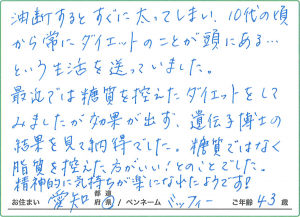 油断するとすぐに太ってしまい、10代の頃
から常にダイエットのことが頭にある…
という生活を送っていました。
最近では糖質を控えたダイエットをして
みましたが効果が出ず、遺伝子博士の
結果を見て納得でした。糖質ではなく
脂質を控えた方がいい!とのことでした。
精神的に気持ちが楽になれたようです!
お住まい 愛知 都道府県 / ペンネーム ミッフィー ご年齢 43 歳